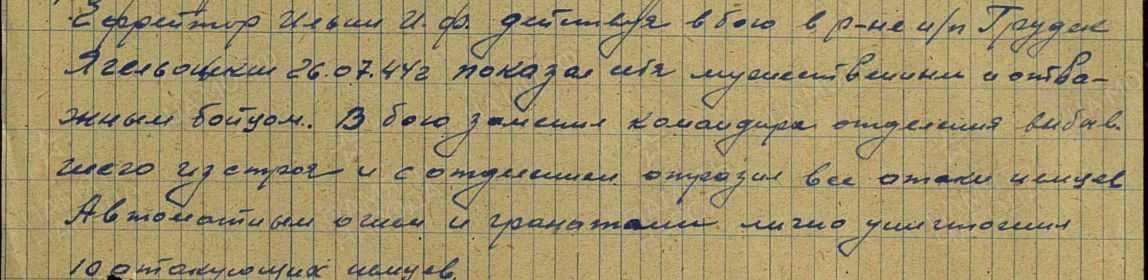 Ефрейтор Ильин И.Ф. действуя в бою в р-не н/п Грудек
Ягельоцкий 26.07.44г показал себя мужественным и отва-
жным бойцом. В бою заменил командира отделения выбыв-
шего из строя и с отделением отразил все атаки немцев
Автоматным огнем и гранатами лично уничтожил
10 атакующих немцев